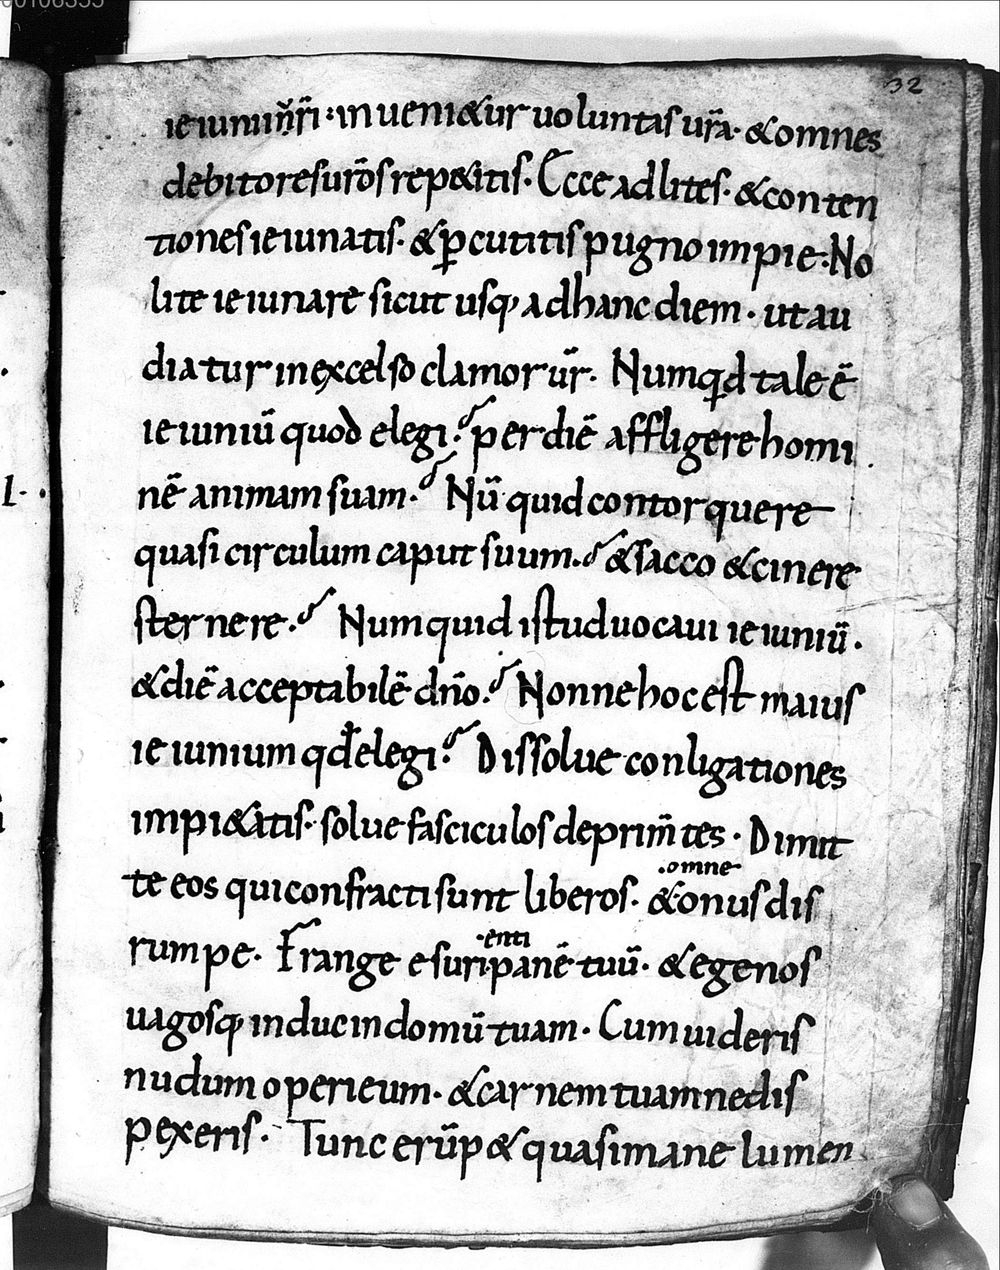 00106355
32
ieiunii ur̃i inueni&ur uoluntas ur̃a· &omnes
debitores ur̃os rep&itis· Ecce ad lites· &conten
tiones ieiunatis· &p̱cutitis pugno impie· No
lite ieiunare sicut usq; ad hanc diem· ut au
diatur in excelso clamor ur̃· Numqd tale ē
ieiuniū quod elegi? per diē affligere homi
nē animam suam? Nū quid contorquere
quasi circulum caput suum? & sacco & cinere
sternere? Numquid istud uocaui ieiuniū·
& diē acceptabilē dño? Nonne hoc est maius
ieiunium qđ elegi? Dissolue conligationes
impi&atis· solue fasciculos deprim̃tes· Dimit
te eos qui confracti sunt liberos· & ·omne onus dis
rumpe· Frange esuri·enti panē tuū· & egenos
uagosq; induc in domū tuam· Cum uideris
nudum operi eum· & carnem tuam ne dis
pexeris· Tunc erūp& quasi mane lumen